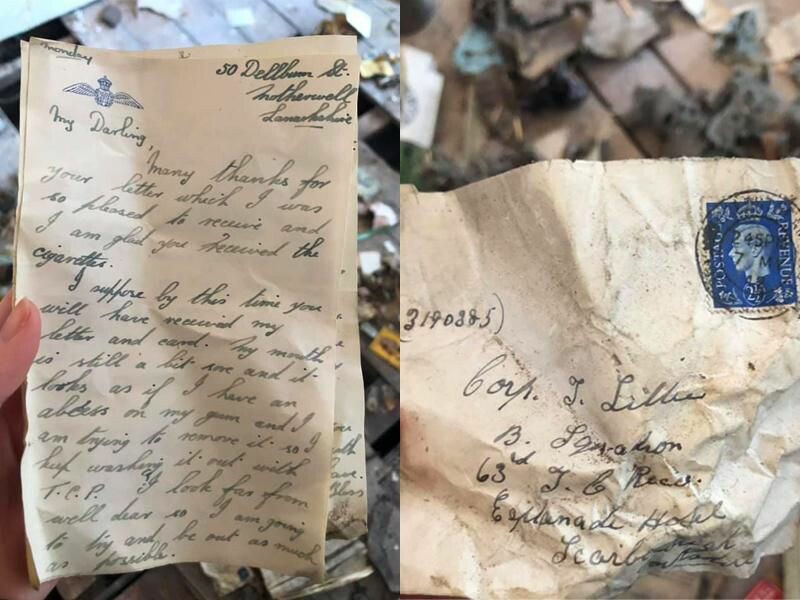 Monday
50 Dellburn St.
Motherwell
Lanarkshire
My Darling,
Many thanks for
your letter which I was
so pleased to receive and
I am glad you received the
cigarettes.
I suppose by this time you
will have received my
letter and card. My mouth
is still a bit sore and it
looks as if I have an
abcess on my gum and I
am trying to remove it so I
keep washing it out with
T.C.P. I look far from
well dear so I am going
to try and be out as much
as possible.
POSTAGE
REVENUE
2½
3190385)
Corp. J. Lillie
B. Squadron
63rd
Esplanade Hotel